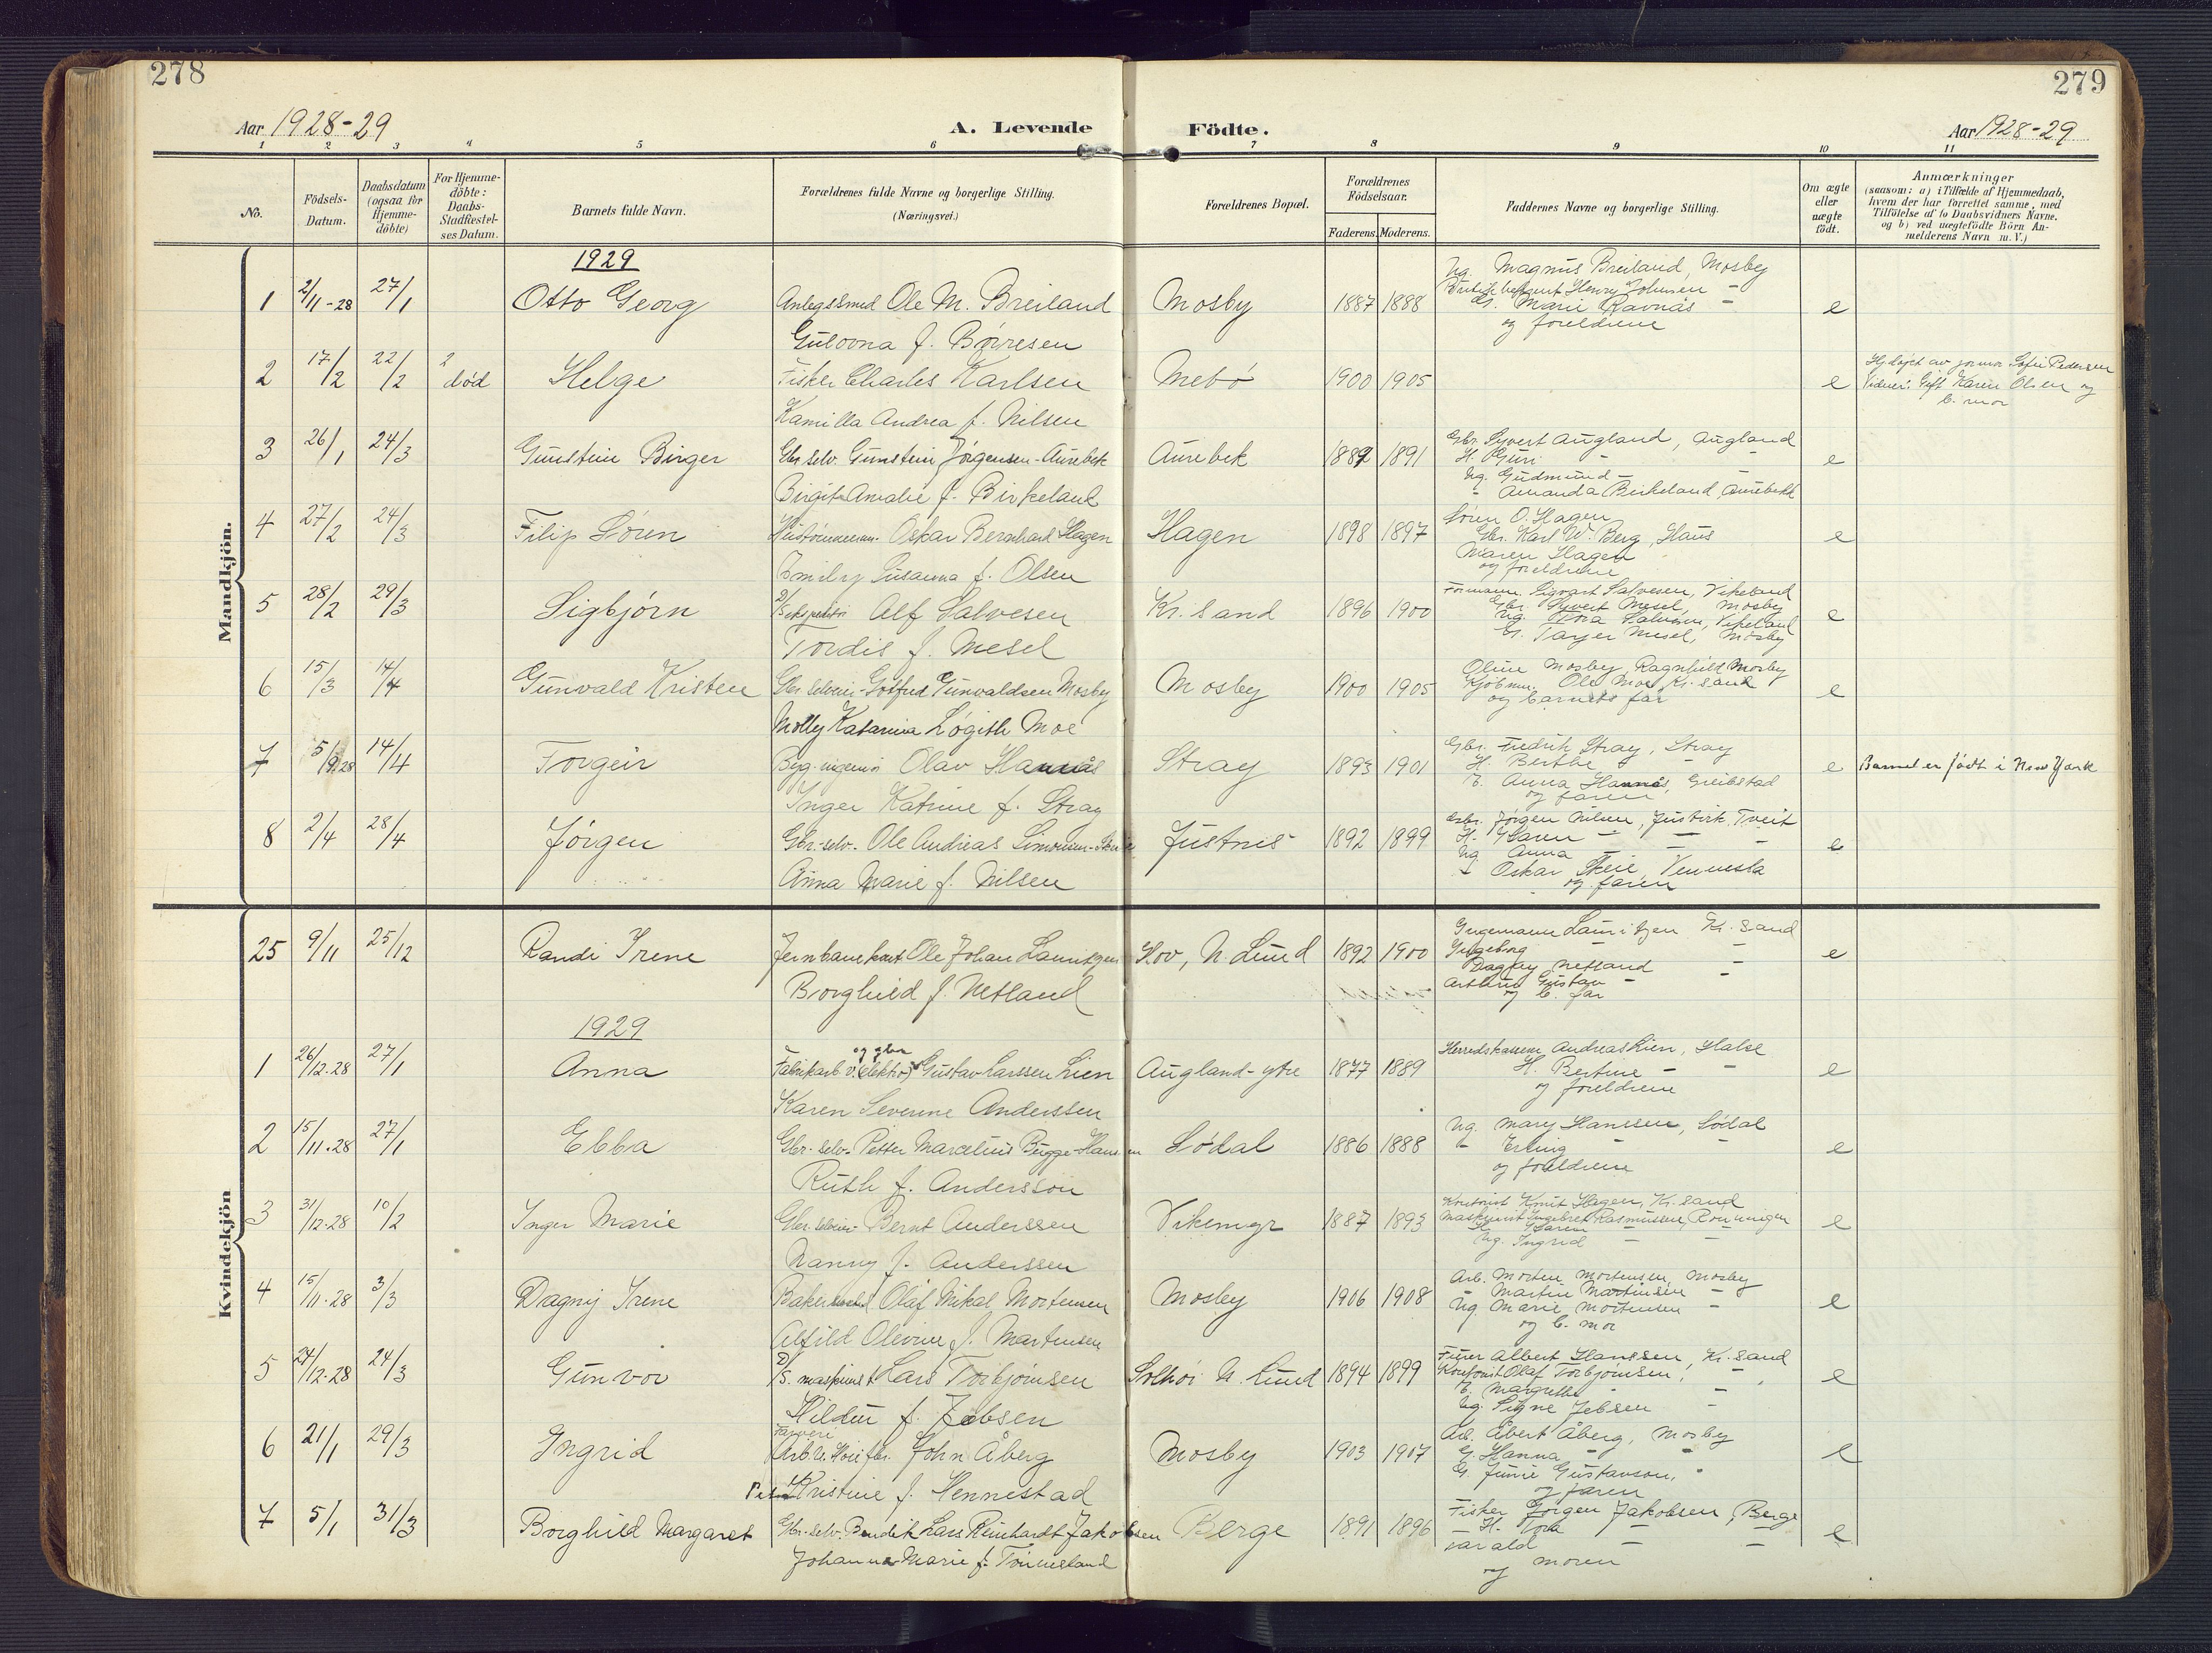 278
279
Aar 1928-29
A. Levende
Födte.
Aar 1928-29
1 2 3 4 5 6 7 8 9 10 11
No.
Födsels-
Datum.
Daabsdatum
(ogsaa for
Hjemme-
döbte)
For Hjemme-
döbte:
Daabs-
Stadfæstel-
ses Datum.
Barnets fulde Navn.
Forældrenes fulde Navne og borgerlige Stilling.
(Næringsvei.)
Forældrenes Bopæl.
Forældrenes
Födselsaar.
Faderens. Moderens.
Faddernes Navne og borgerlige Stilling.
Om ægte
eller
uægte
födt.
Anmærkninger
(saasom: a) i Tilfælde af Hjemmedaab,
hvem der har forrettet samme, med
Tilföielse af to Daabsvidners Navne.
og b) ved uægtefödte Börn An-
melderens Navn m. V.)
Mandkjön.
1929
1 2/11-28 27/1 Otto Georg Anlegssmed Ole M. Breiland Mosby 1887 1888 e
Gulovna f. Børresen
Ug. Magnus Breiland, Mosby
Henry Johnsen -
G. Marie Ravnås -
og foreldrene
2 17/2 22/2 død Helge Fisker Charles Karlsen Mebø 1900 1905 e
Kamilla Andrea f. Nilsen
Hj.døpt av jormor Sofie Pedersen
Vidner: Gift Karen Olsen og
b. mor
3 26/1 24/3 Gunstein Birger Gbr. selv. Gunstein Jørgensen-Aurebek Aurebek 1889 1891 e
Birgit Amalie f. Birkeland
Gbr. Syvert Augland, Augland
H. Guri - -
Ug. Gudmund -
- Amanda Birkeland, Aurebekk
4 27/2 24/3 Filip Søren Oskar Bernhard Hagen Hagen 1898 1897 e
Emily Susanna f. Olsen
Søren O. Hagen
Gbr. Karl W. Berg, Haus
Maren Hagen
og foreldrene
5 28/2 29/3 Sigbjørn Alf Salvesen Kr.sand 1896 1900 e
Tordis f. Mesel
Formann Sigvart Salvesen, Vikeland
Gbr. Syvert Mesel, Mosby
Ug. Tora Salvesen, Vikeland
G. Tarjer Mesel, Mosby
6 15/3 14/4 Gunvald Kristen Gbr. selveier Gotfred Gunvaldsen Mosby Mosby 1900 1905 e
Molly Katarina Løgith Moe
Oline Mosby, Ragnhild Mosby
Kjøbm. Ole Moe, Kr.sand
og barnets far
7 5/9.28 14/4 Torgeir Byg. ingeniør Olav Hannås Stray 1893 1901 e Barnet er født i New York
Inger Katrine f. Stray
Gbr. Fredrik Stray, Stray
H. Berthe - -
E. Anna Hannås, Greibstad
og faren
8 2/4 28/4 Jørgen Gbr.-selv. Ole Andreas Simonsen-Skeie Justnes 1892 1899 e
Anna Marie f. Nilsen
Gbr. Jørgen Nilsen, Justvik, Tveit
H. Karen - - -
Ug. Anna - - -
- Oskar Skeie, Vennesla
og faren
Kvindekjön
25 9/11 25/12 Randi Irene Jernbanekont. Ole Johan Lauritzen Hov, N. Lund 1892 1900 e
Borghild f. Netland
Ingemann Lauritzen Kr.sand
Ingeborg - -
Dagny Netland -
Gustav -
og b. far
1929
1 26/12.28 27/1 Anna Fabrikarb. v. (elektro) og gbr. Gustav Larssen Lien Augland-ytre 1877 1889 e
Karen Severine Anderssen
Herredskasserer Andreas Lien, Halse
H. Bertine - -
og foreldrene
2 15/11.28 27/1 Ebba Gbr.-selv. Petter Marcelius Bugge-Hanssen Sødal 1886 1888 e
Ruth f. Andersson
Ug. Mary Hanssen, Sødal
- Erling - -
og foreldrene
3 31/12.28 10/2 Inger Marie Gbr. selveier Bernt Anderssen Vikemyr 1887 1893 e
Nanny f. Anderssen
Kontorist Knut Hagen, Kr.sand
Maskinist Ingebret Rasmussen, Rönningen
H. Karen - -
Ug. Ingrid - -
4 15/11.28 3/3 Dagny Irene Baker Olaf Mikal Mortensen Mosby 1906 1908 e
Alfild Olevine f. Martinsen
Arb. Morten Mortensen, Mosby
- Martin Martinsen -
Ug. Marie Mortensen -
og b. mor
5 24/12-28 24/3 Gunvor D/S. maskinist Lars Torbjørnsen Solhøi N. Lund 1894 1899 e
Hildur f. Jebsen
Furer Albert Hanssen, Kr.sand
Kontorist Olaf Torbjørnsen, -
E. Margrethe - -
Ug. Signe Jebsen -
6 21/1 29/3 Ingrid Farveri Arb. v. Høie fbr. John Åberg Mosby 1903 1907 e
Kristine f. Hennestad
Arb. Åbert Åberg, Mosby
G. Hanna - -
G. Junie Gustavson, -
og faren
7 5/1 31/3 Borghild Margaret Gbr.-selv. Bendik Lars Reinhardt Jakobsen Berge 1891 1896 e
Johanna Marie f. Tönnesland
Fisker Jørgen Jakobsen, Berge
- H. Tora - -
Harald - -
og moren